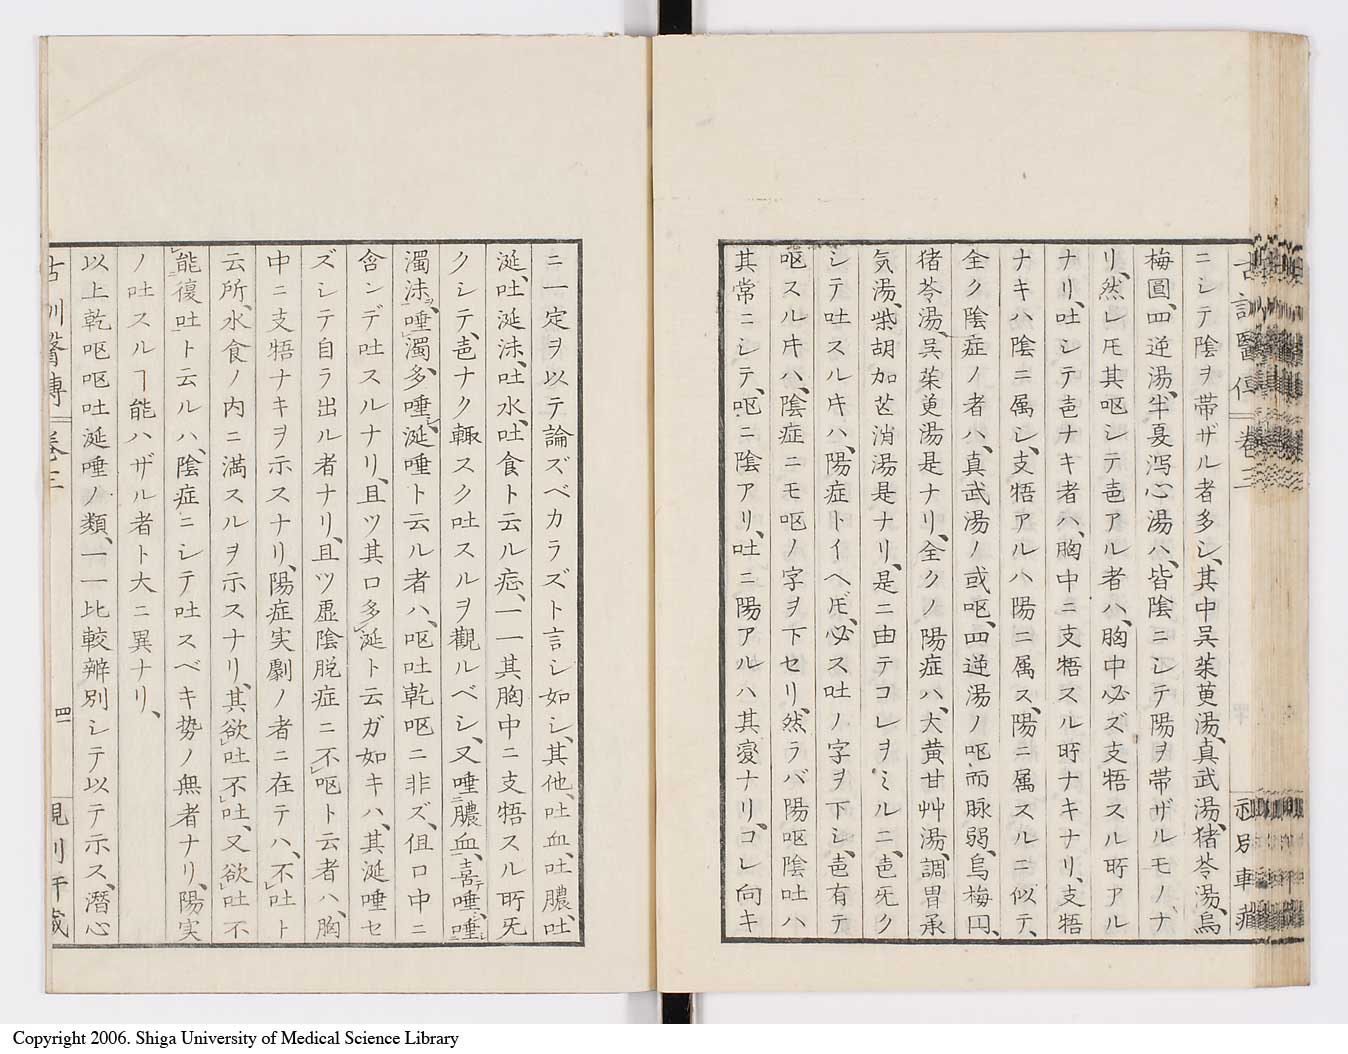 ニシテ陰ヲ帯ザル者多シ、其中呉茱萸湯、真武湯、猪苓湯、烏
梅圓、四逆湯、半夏瀉心湯ハ、皆陰ニシテ陽ヲ帯ザルモノ、ナ
リ、然レ𪜈其呕シテ㐌アル者ハ、胸中必ズ支牾スル所アル
ナリ、吐シテ㐌ナキ者ハ、胸中ニ支牾スル所ナキナリ、支牾
ナキハ陰ニ属シ、支牾アルハ陽ニ属ス、陽ニ属スルニ似テ、
全ク陰症ノ者ハ、真武湯ノ或呕、四逆湯ノ呕而脉弱、烏梅円、
猪苓湯、呉茱萸湯是ナリ、全クノ陽症ハ、大黄甘艸湯、調胃承
気湯、柴胡加芒消湯是ナリ、是ニ由テコレヲミルニ、㐌旡ク
シテ吐スル𪜈ハ、陽症トイヘ𪜈、必ス吐ノ字ヲ下シ、㐌有テ
呕スル𪜈ハ、陰症ニモ呕ノ字ヲ下セリ、然ラバ陽呕陰吐ハ
其常ニシテ、呕ニ陰アリ、吐ニ陽アルハ其変ナリ、コレ向キ
古訓醫傳 巻三
ニ一定ヲ以テ論ズベカラズト言シ如シ、其他、吐血、吐膿、吐
涎、吐涎沫、吐水、吐食ト云ル症、一一其胸中ニ支牾スル所旡
クシテ、㐌ナク輙スク吐スルヲ觀ルベシ、又唾膿血、喜唾、唾
濁沫、唾濁、多唾、涎唾ト云ル者ハ、呕吐乾呕ニ非ズ、但口中ニ
含ンデ吐スルナリ、且ツ其口多涎ト云ガ如キハ、其涎唾セ
ズシテ自ラ出ル者ナリ、且ツ虚陰脱症ニ不呕ト云者ハ、胸
中ニ支牾ナキヲ示スナリ、陽症実劇ノ者ニ在テハ、不吐ト
云所、水食ノ内ニ満スルヲ示スナリ、其欲吐不吐、又欲吐不
能復吐ト云ルハ、陰症ニシテ吐スベキ势ノ無者ナリ、陽実
ノ吐スルヿ能ハザル者ト大ニ異ナリ、
以上乾呕呕吐涎唾ノ類、一一比較辨別シテ以テ示ス、潛心
古訓醫傳 巻三 四一
Copyright 2006. Shiga University of Medical Science Library